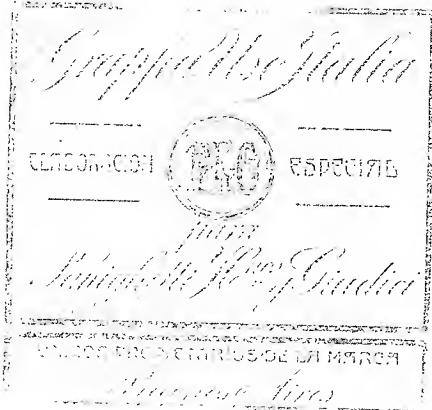 Grappa Uso Italia
ELABORACION ESPECIAL
para
Hnos y Giudici
UNICOS PROPIETARIOS DE LA MARCA
Buenos Aires